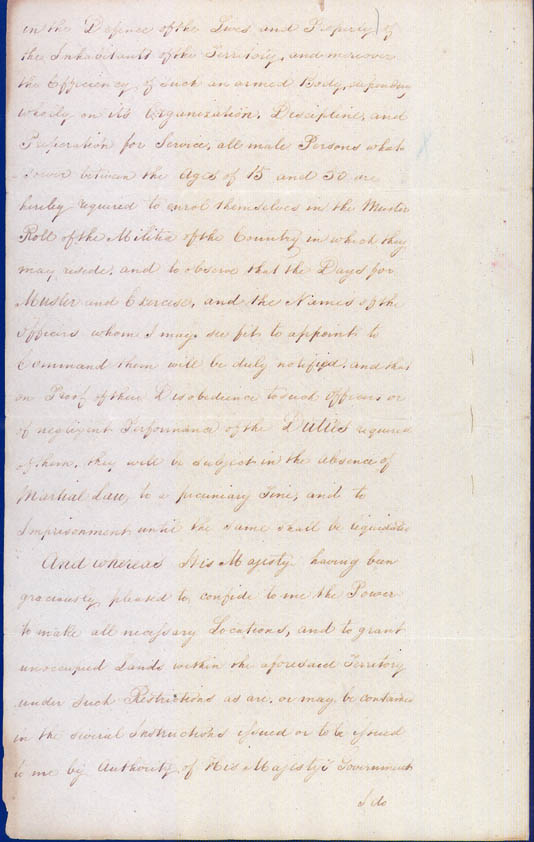 in the Defence of the Lives and Property of
the Inhabitants of the Territory, and moreover
the Efficiency of such an armed Body, depending
wholly on its Organization, Discipline, and
Preperation for Service, all male Persons what
soever between the Ages of 15 and 50 are
hereby required to enrol themselves in the Muster
Roll of the Militia of the Country in which they
may reside, and to observe that the Days for
Muster and Exercise, and the Names of the
officers whom I may see fit to appoint to
Command them will be duly notified, and that
on Proof of their Disobedience to such Officers or
of negligent Performance of the Duties required
of them, they will be subject in the absence of
Martial Law, to a pecuniary Fine, and to
Imprisonment until the same shall be liquidated
And whereas His Majesty having been
graciously pleased to confide to me the Power
to make all necessary Locations, and to grant
unoccupied Lands within the aforesaid Territory
under such Restrictions as are, or may be contained
in the several Instructions issued or to be issued
to me by Authority of His Majesty's Government
I do